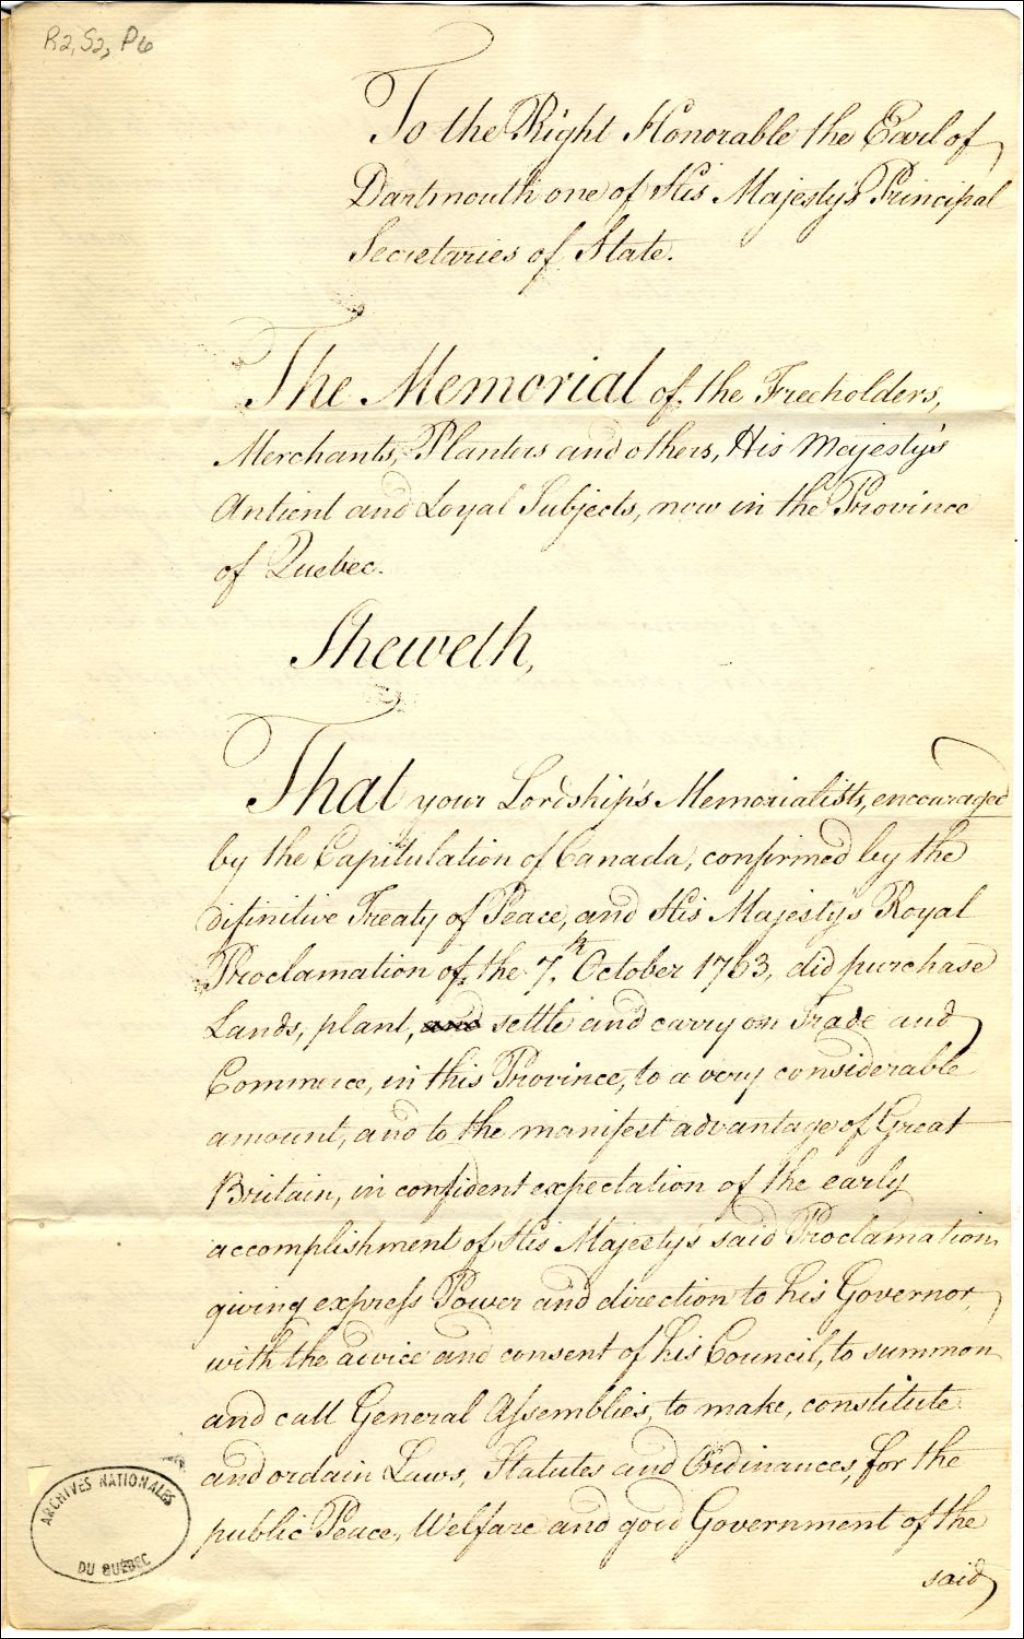 R2, S2, P6
To the Right Honorable the Earl of
Dartmouth one of His Majesty's Principal
Secretaries of State.
The Memorial of the Freeholders,
Merchants, Planters and others, His Majesty's
Antient and Loyal Subjects, now in the Province
of Quebec.
Sheweth,
That your Lordship's Memorialists, encouraged
by the Capitulation of Canada, confirmed by the
difinitive Treaty of Peace, and His Majesty's Royal
Proclamation of the 7.th October 1763, did purchase
Lands, plant, and settle and carry on Trade and
Commerce, in this Province, to a very considerable
amount, and to the manifest advantage of Great
Britain, in confident expectation of the early
accomplishment of His Majesty's said Proclamation,
giving express Power and direction to his Governor,
with the advice and consent of his Council, to summon
and call General Assemblies, to make, constitute
and ordain Laws, Statutes and Ordinances, for the
public Peace, Welfare and good Government of the
said
ARCHIVES NATIONALES
DU QUÉBEC